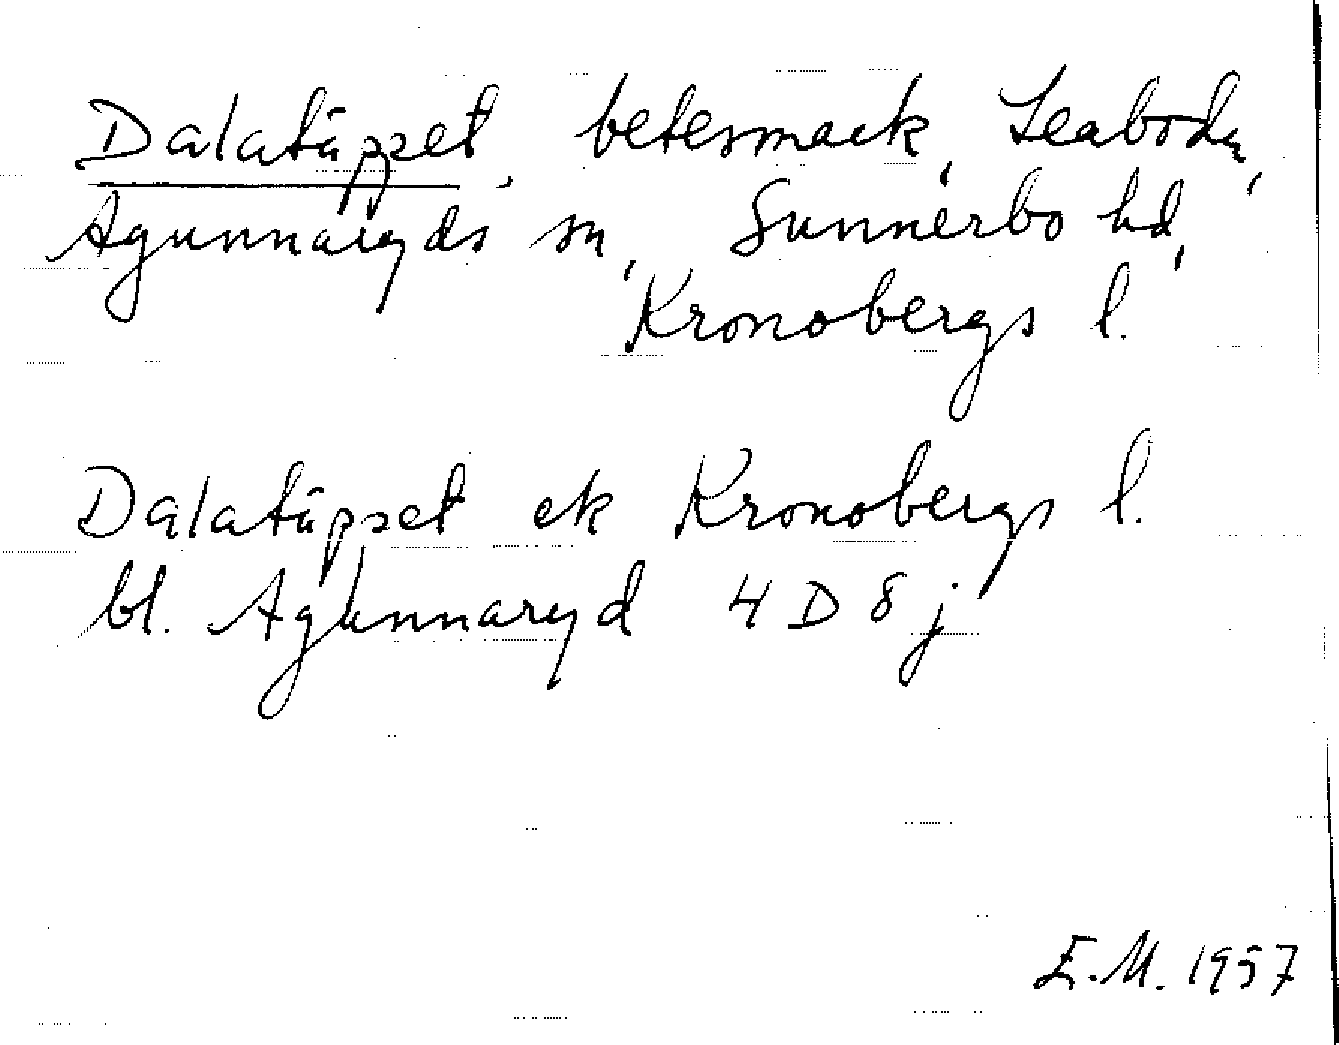 Dalatäppet, betesmark, Seaboda,
Agunnaryds sn, Sunnerbo hd,
Kronobergs l.
Dalatäppet ek Kronobergs l.
bl. Agunnaryd 4 D 8 j
E.M. 1957